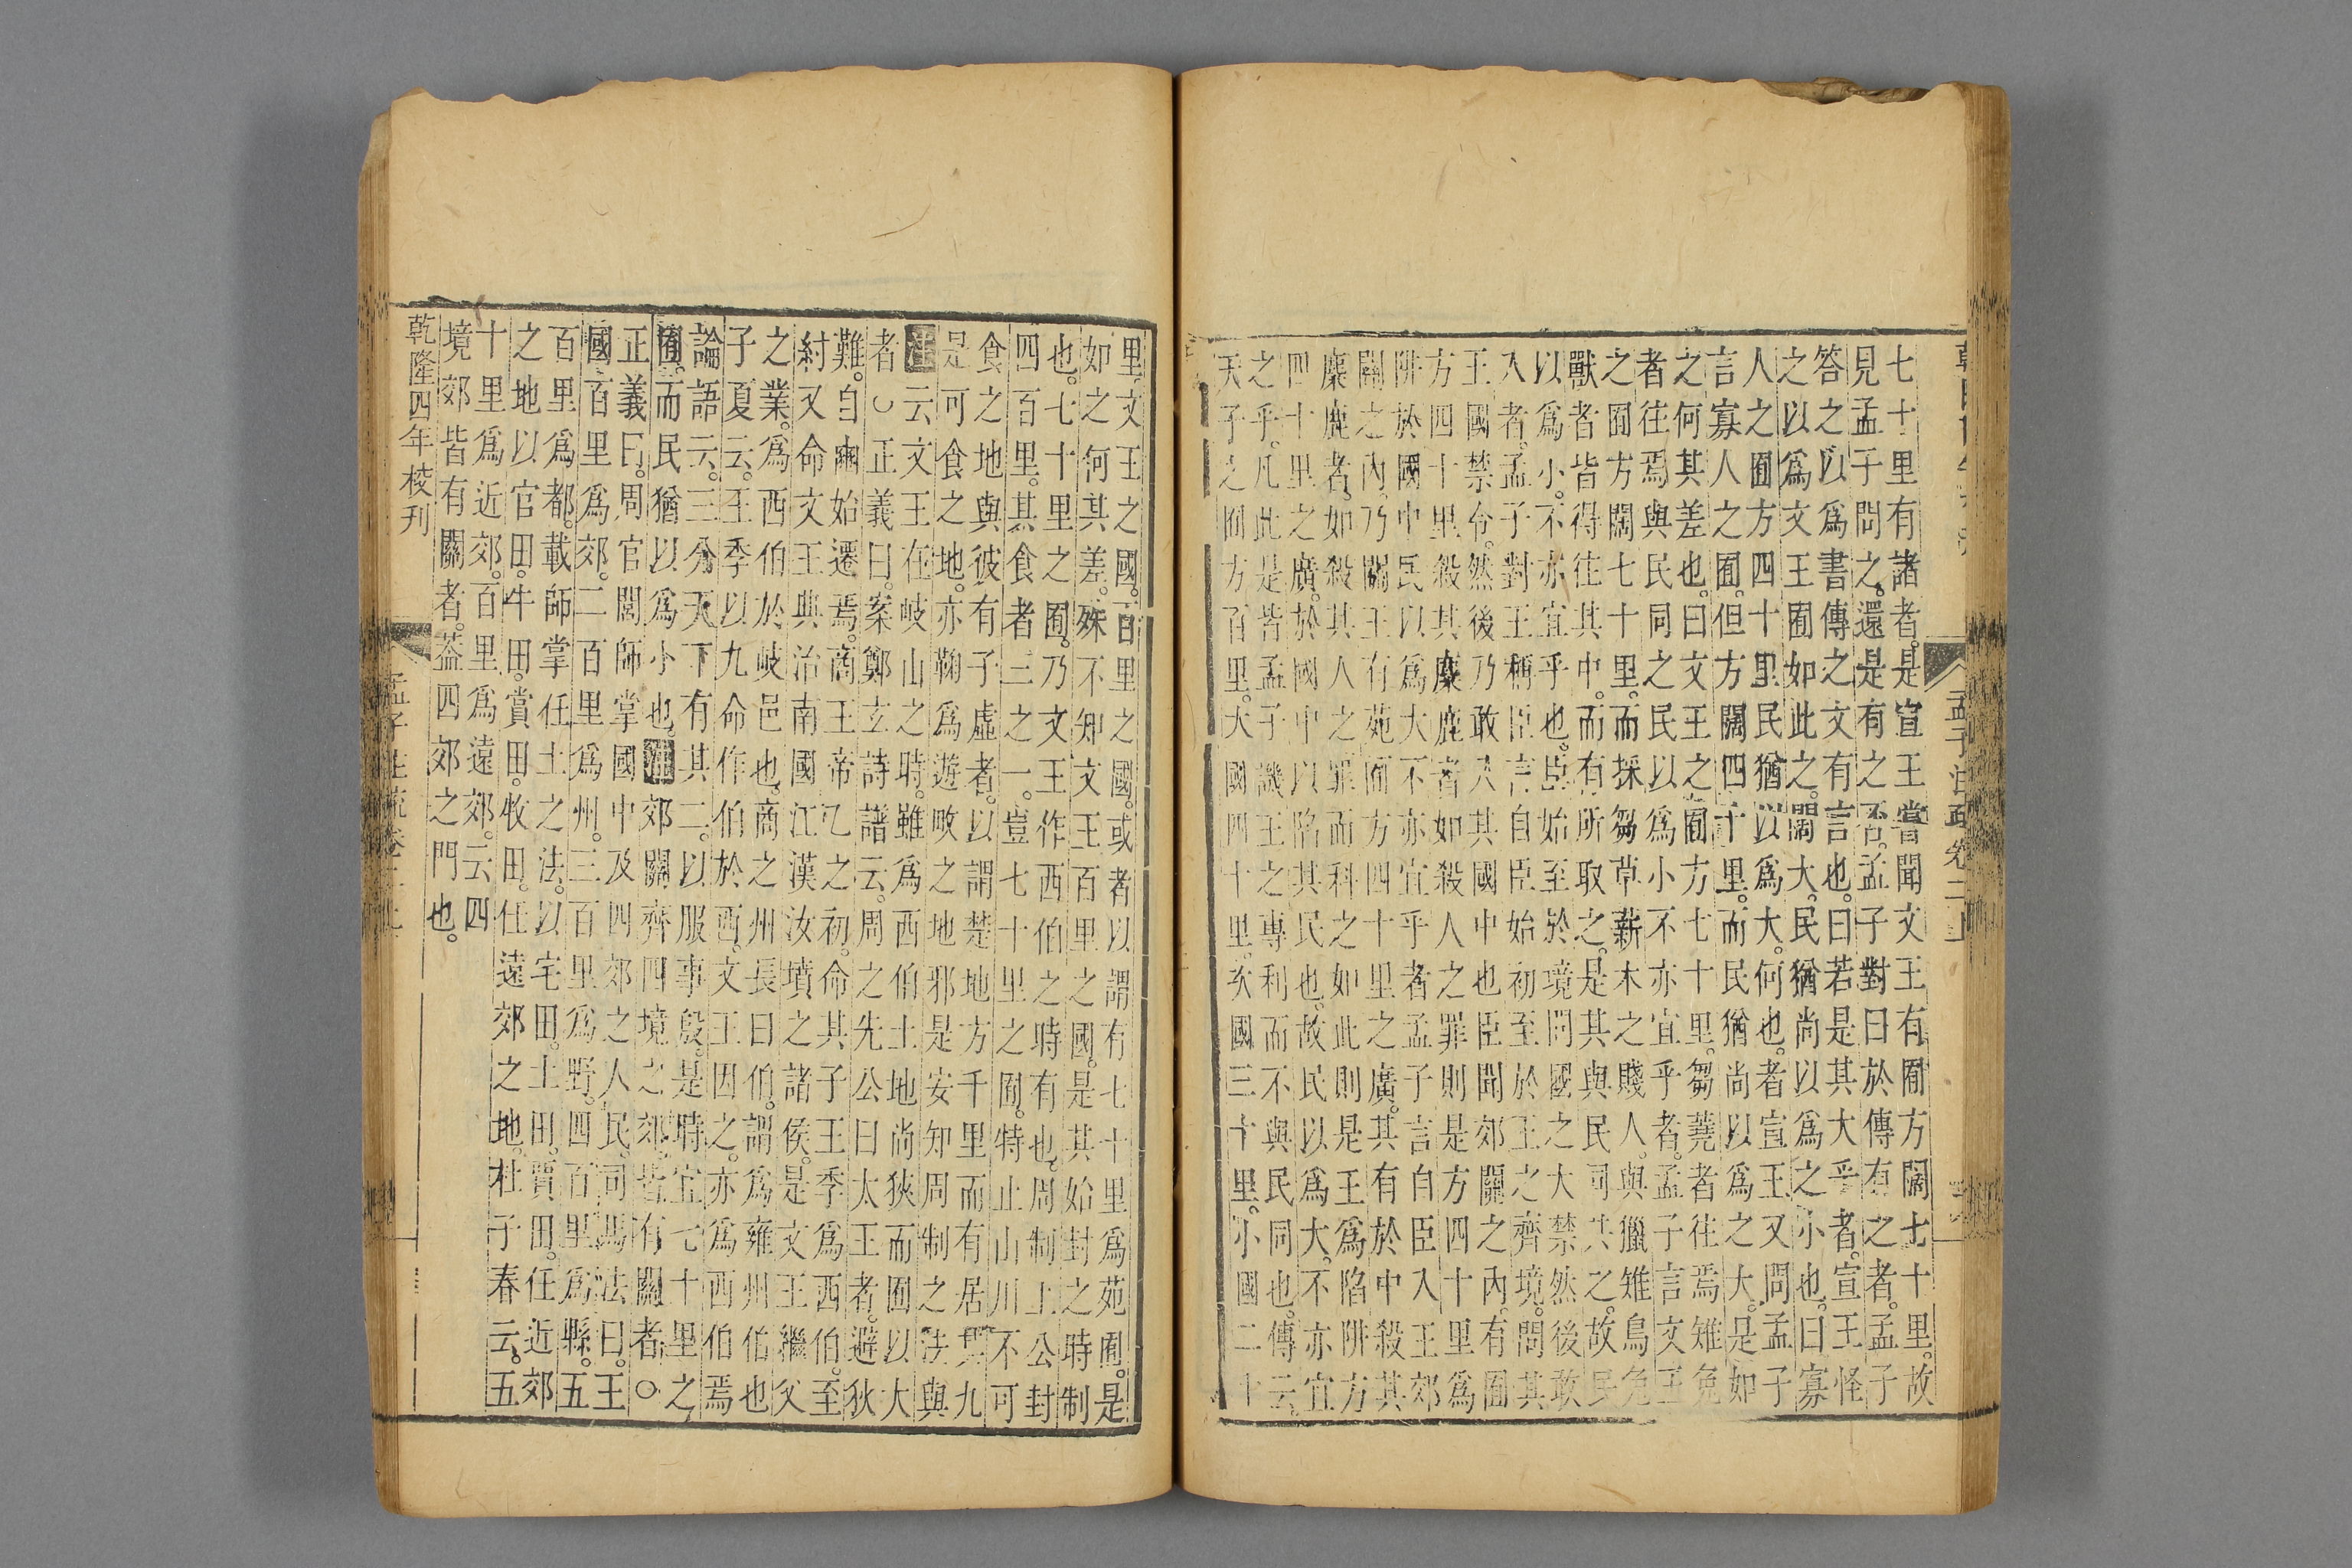 七十里有諸者是宣王嘗聞文王有囿方闊七十里故
見孟子問之還是有之否孟子對曰於傳有之者孟子
答之以爲書傳之文有言也曰若是其大乎者宣王怪
之以爲文王囿如此之闊大民猶尚以爲之小也曰寡
人之囿方四十里民猶以爲大何也者宣王又問孟子
言寡人之囿但方闊四十里而民猶尚以爲之大是如
之何其差也曰文王之囿方七十里芻蕘者往焉雉兔
者往焉與民同之民以爲小不亦宜乎者孟子言文王
之囿方闊七十里而採芻草薪木之賤人與獵雉鳥兔
獸者皆得往其中而有所取之是其與民同共之故民
以爲小不亦宜乎也臣始至於境問國之大禁然後敢
入者孟子對王稱臣言自臣始初至於王之齊境問其
王國禁令然後乃敢入其國中也臣聞郊關之內有囿
方四十里殺其麋鹿者如殺人之罪則是方四十里爲
阱於國中民以爲大不亦宜乎者孟子言自臣入王郊
關之內乃關王有苑囿方四十里之廣其有於中殺其
麋鹿者如殺其人之罪而科之如此則是王爲陷阱方
四十里之廣於國中以陷其民也故民以爲大不亦宜
之乎凡此是皆孟子譏王之專利而不與民同也傳云
天子之囿方百里大國四十里次國三十里小國二十
孟子注疏卷二上
里文王之國百里之國或者以謂有七十里爲苑囿是
如之何其差殊不知文王百里之國是其始封之時制
也七十里之囿乃文王作西伯之時有也周制上公封
四百里其食者三之一豈七十里之囿特止山川不可
食之地與彼有子虛者以謂楚地方千里而有居其九
是可食之地亦鞠爲遊畋之地邪是安知周制之法與
注云文王在岐山之時雖爲西伯土地尚狹而囿以大
者○正義曰案鄭玄詩譜云周之先公曰太王者避狄
難自豳始遷焉商王帝乙之初命其子王季爲西伯至
紂又命文王典治南國江漢汝墳之諸侯是文王繼父
之業爲西伯於岐邑也商之州長曰伯謂爲雍州伯也
子夏云王季以九命作伯於西文王因之亦爲西伯焉
論語云三分天下有其二以服事殷是時宜七十里之
囿而民猶以爲小也注郊關齊四境之郊皆有關者○
正義曰周官閭師掌國中及四郊之人民司馬法曰王
國百里爲郊二百里爲州三百里爲野四百里爲縣五
百里爲都載師掌任土之法以宅田土田賈田任近郊
之地以官田牛田賞田牧田任遠郊之地杜子春云五
十里爲近郊百里爲遠郊云四
境郊皆有關者葢四郊之門也
乾隆四年校刊
孟子注疏卷二上